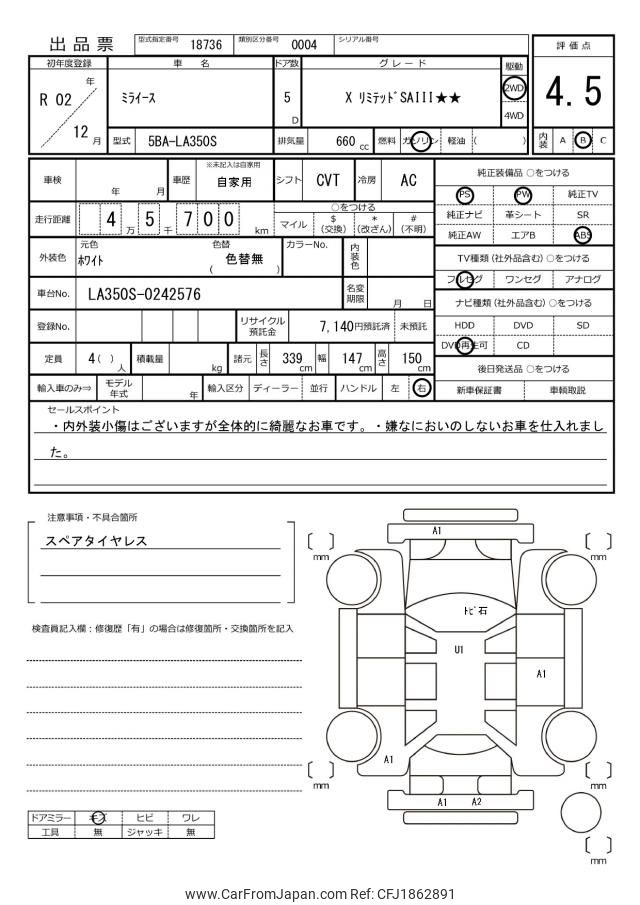 出品票
型式指定番号 18736 類別区分番号 0004 シリアル番号
評価点
4.5
内装 A B C
初年度登録 車名 ドア数 グレード 駆動
R 02 年 / 12 月
ﾐﾗｲｰｽ 5 D X ﾘﾐﾃｯﾄﾞSAIII★★ 2WD
4WD
型式 5BA-LA350S 排気量 660 cc 燃料 ガソリン 軽油 ( )
車検 年 月 車歴 ※未記入は自家用 自家用 シフト CVT 冷房 AC
走行距離 4 万 5 千 7 0 0 km
○をつける
マイル $(交換) *(改ざん) #(不明)
外装色 元色 ﾎﾜｲﾄ 色替 ( 色替無 ) カラーNo. 内装色
車台No. LA350S-0242576 名変期限 月 日
登録No. リサイクル預託金 7,140円預託済 未預託
定員 4( )人 積載量 kg 諸元 長さ 339cm 幅 147cm 高さ 150cm
輸入車のみ⇒ モデル年式 年 輸入区分 ディーラー 並行 ハンドル 左 右
純正装備品 ○をつける
PS PW 純正TV
純正ナビ 革シート SR
純正AW エアB ABS
TV種類(社外品含む)○をつける
フルセグ ワンセグ アナログ
ナビ種類(社外品含む)○をつける
HDD DVD SD
DVD再生可 CD
後日発送品 ○をつける
新車保証書 車輌取説
セールスポイント
・内外装小傷はございますが全体的に綺麗なお車です。・嫌なにおいのしないお車を仕入れまし
た。
注意事項・不具合箇所
スペアタイヤレス
検査員記入欄：修復歴「有」の場合は修復箇所・交換箇所を記入
ドアミラー キズ ヒビ ワレ
工具 無 ジャッキ 無
A1
mm
mm
ﾄﾋﾞ石
U1
A1
A1
mm
mm
A1 A2
mm
www.CarFromJapan.com Ref: CFJ1862891